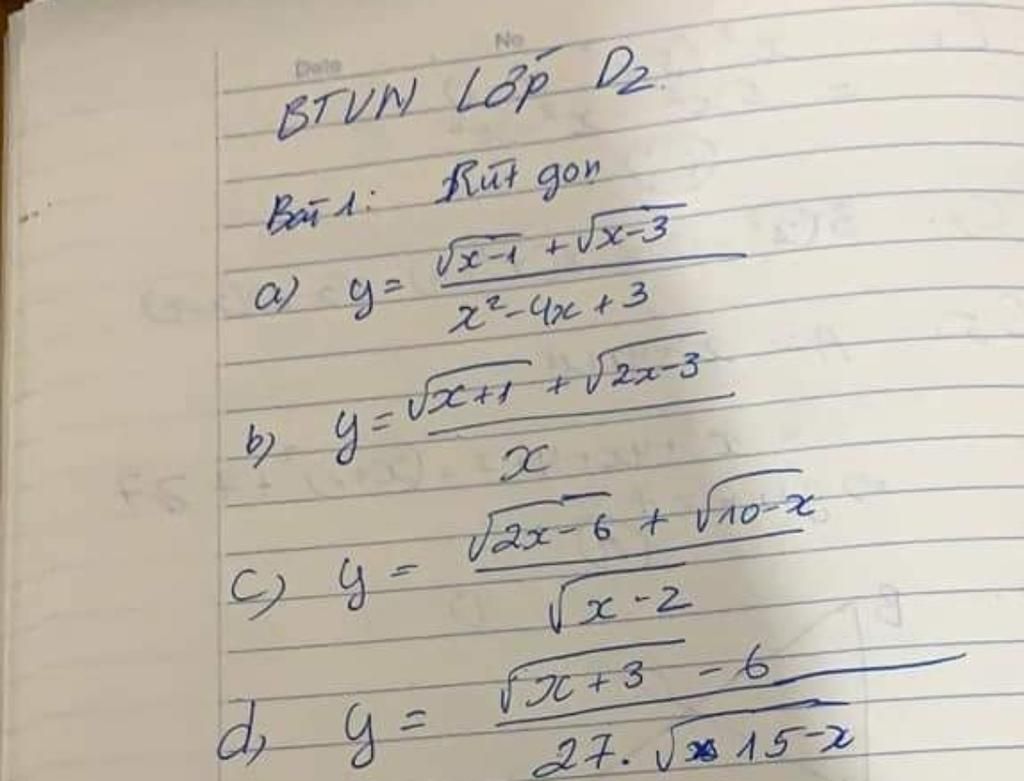 Date No
BTVN Lớp D2.
Bài 1: Rút gọn
a) y = (√(x-1) + √(x-3)) / (x² - 4x + 3)
b) y = (√(x+1) + √(2x-3)) / x
c) y = (√(2x-6) + √(10-x)) / √(x-2)
d, y = (√(x+3) - 6) / (27. √(15-x))